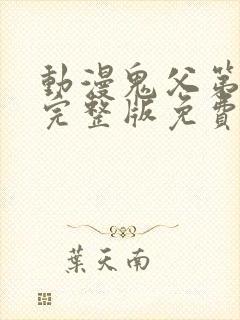 動漫鬼父第
完整版免費
葉天南